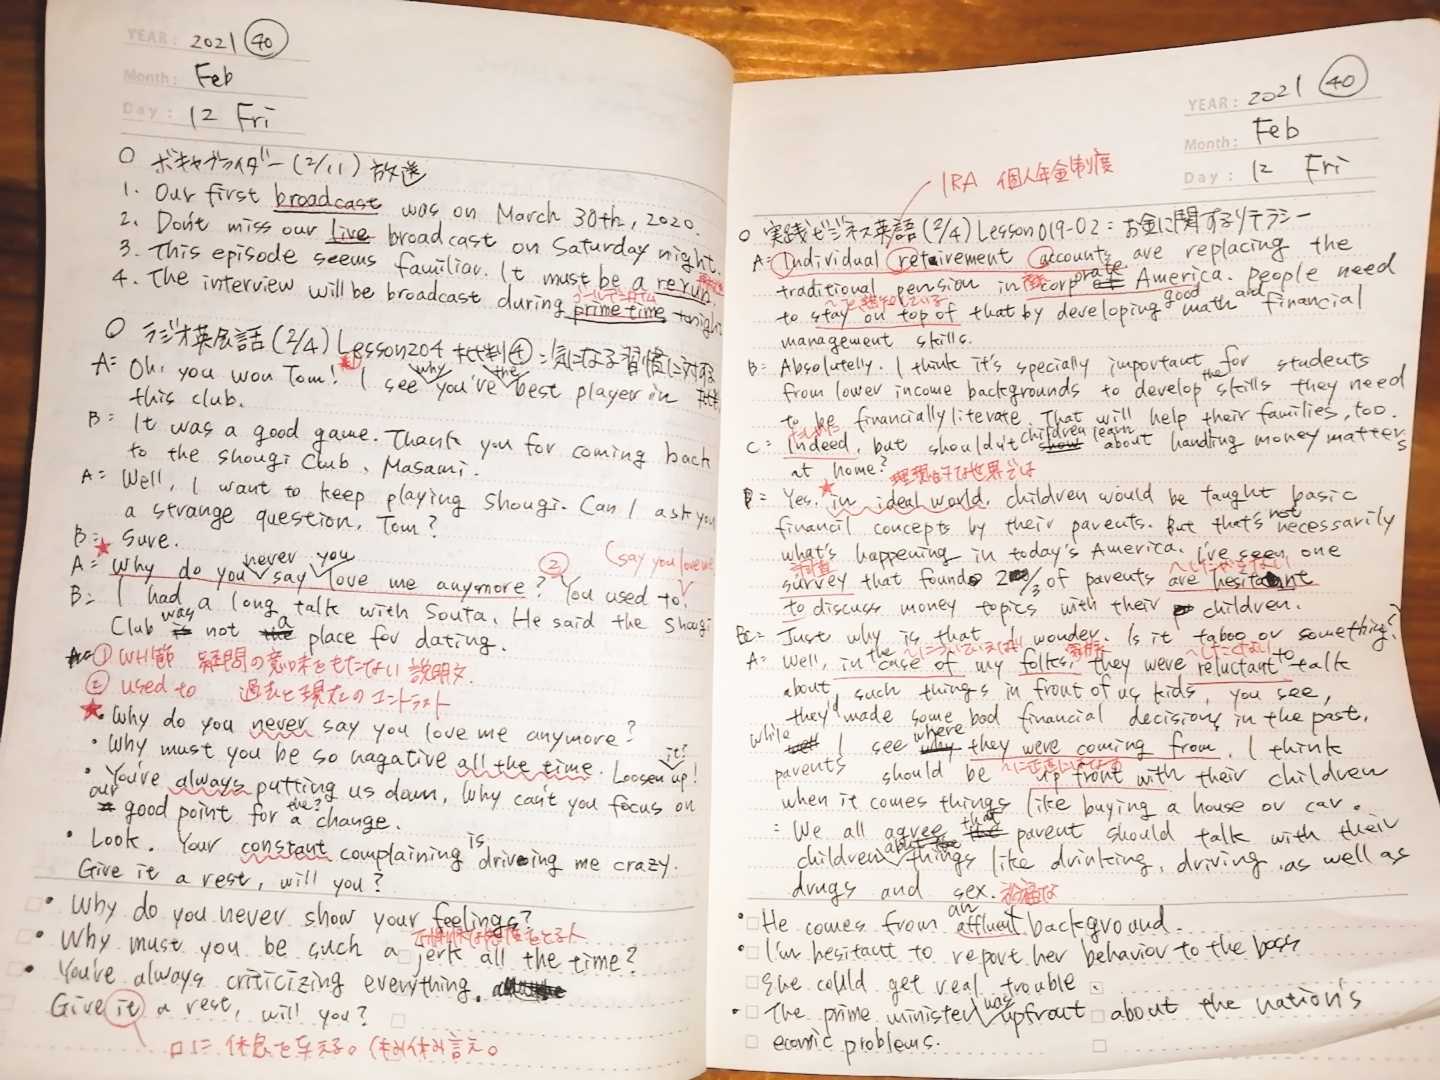 YEAR: 2021 40
Month: Feb
Day: 12 Fri
○ ボキャブライダー(2/11) 放送
1. Our first broadcast was on March 30th, 2020.
2. Don't miss our live broadcast on Saturday night.
3. This episode seems familiar. It must be a rerun.
4. The interview will be broadcast during prime time tonight
○ ラジオ英会話(2/4) Lesson204 批判④:気になる習慣に対する
批判
A= Oh, you won Tom! I see why you've the best player in
this club.
B= It was a good game. Thank you for coming back
to the shougi Club, Masami.
A= Well, I want to keep playing shougi. Can I ask you
a strange question, Tom?
B= Sure.
(say you love me
A= Why do you never say you love me anymore? ② You used to.
B= I had a long talk with Souta. He said the Shougi
Club was not a place for dating.
① WH節 疑問の意味をもたない説明文.
② used to 過去と現在のコントラスト
・Why do you never say you love me anymore?
・Why must you be so nagative all the time. Loosen it? up!
・You've always putting us down, Why can't you focus on
our good point for a the? change.
・Look. Your constant complaining is driving me crazy.
Give it a rest, will you?
・Why do you never show your feelings?
・Why must you be such a jerk all the time?
・You've always criticizing everything.
Give it a rest, will you?
口に休息を与える。(休み休み言え。
YEAR: 2021 40
Month: Feb
Day: 12 Fri
IRA 個人年金制度
○ 実践ビジネス英語(2/4) Lesson019-02:お金に関するリテラシー
A= Individual retirement accounts are replacing the
traditional pension in corporate America. People need
to stay on top of that by developing good math and financial
management skills.
B= Absolutelly. I think it's specially important for students
from lower income backgrounds to develop the skills they need
to be financially literate. That will help their families, too.
C= Indeed, but shouldn't children learn about handling money matters
at home?
理想的な世界では
Yes, in ideal world, children would be taught basic
financial concepts by their parents. But that's not necessarily
what's happening in today's America. I've seen one
survey that found 2/3 of parents are hesitant
to discuss money topics with their children.
Just why is that, I wonder. Is it taboo or something?
A= Well, in the case of my folks, they were reluctant to talk
about such things in front of us kids, you see,
they'd made some bad financial decisions in the past.
while I see where they were coming from, I think
parents should be up front with their children
when it comes things like buying a house or car.
= We all agree that parent should talk with their
children about the things like drinking, driving, as well as
drugs and sex.
・He comes from an affluent background.
・I'm hesitant to report her behavior to the boss
She could get real trouble
・The prime minister was upfront about the nation's
econic problems.